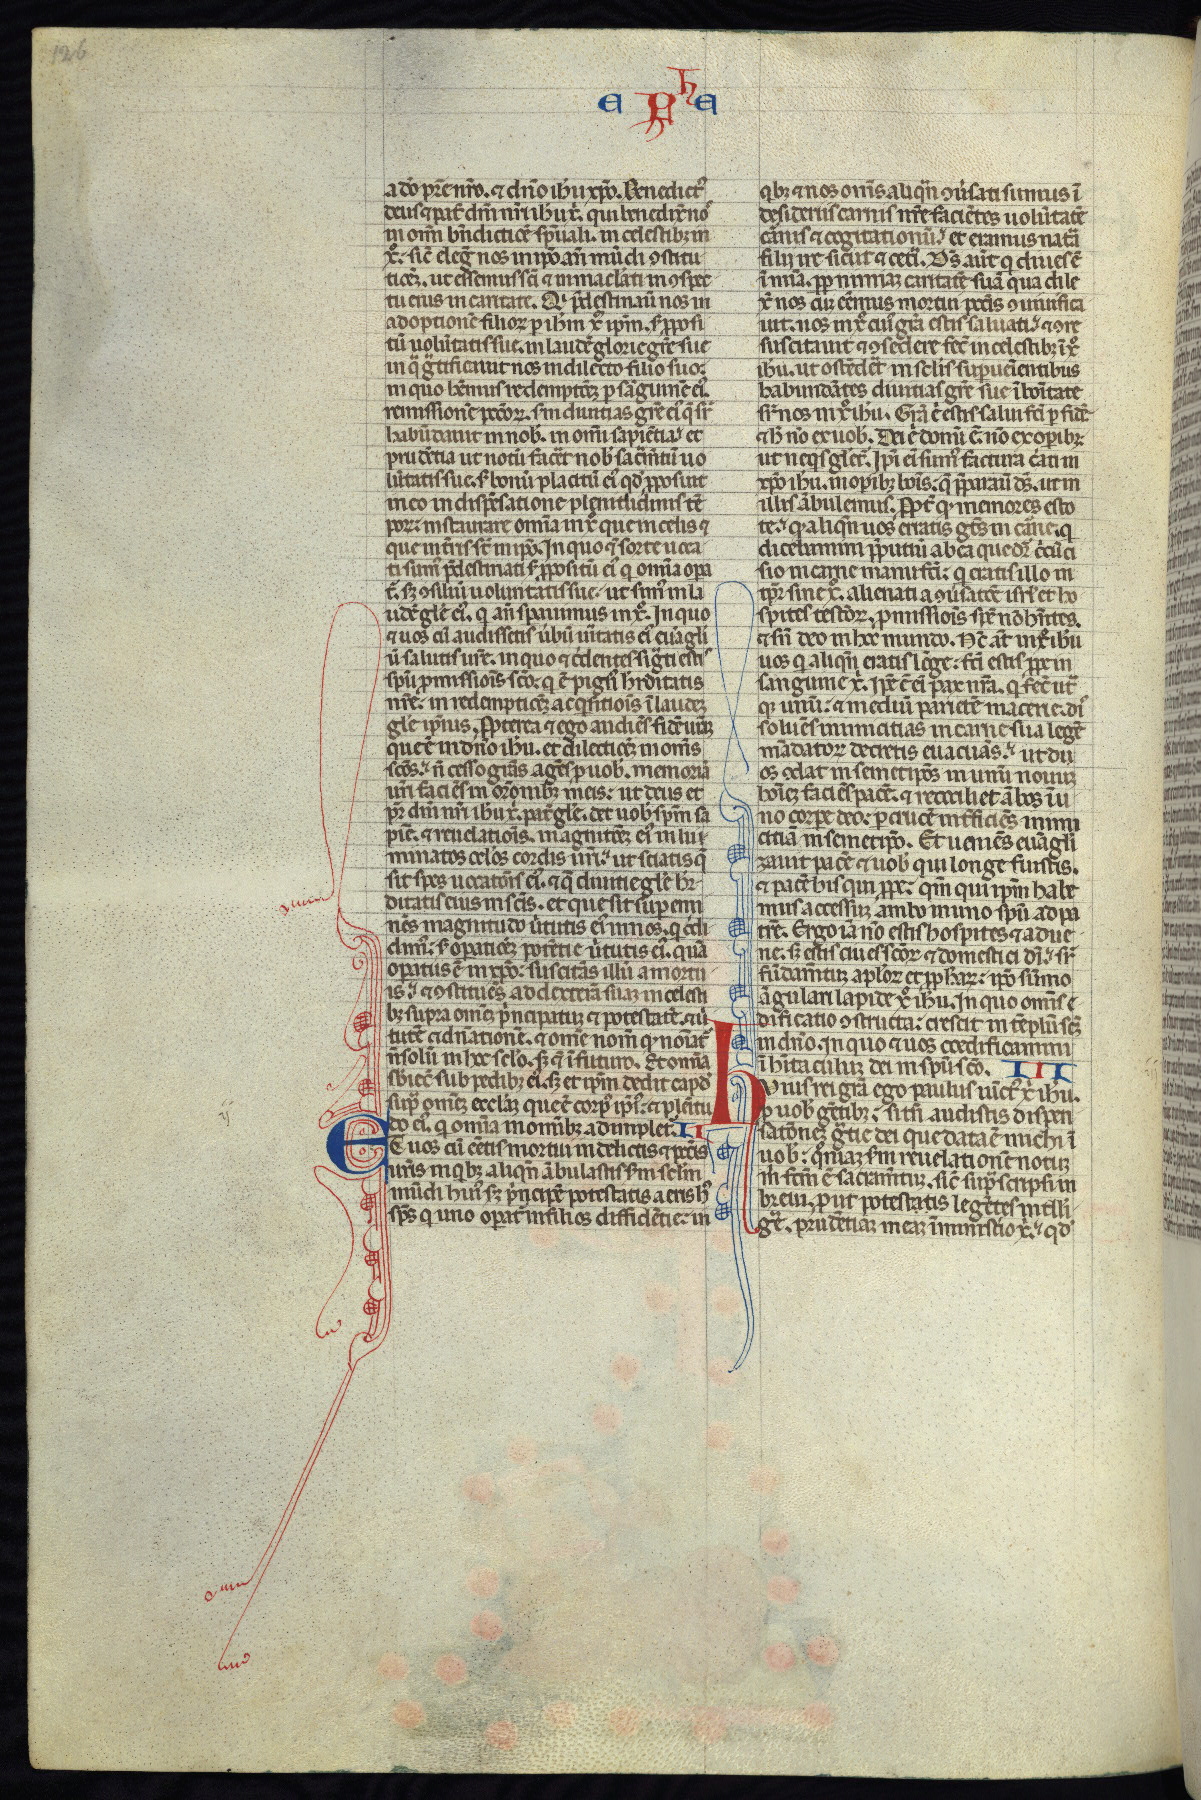 126
e ph e
a dõ pr̄e nr̄o. ⁊ dn̄o ih̄u xp̄o. Benedict᾽
deus ⁊ pat̄ dn̄i nr̄i ih̄u x̄. qui benedix̄ no
in om̄i bn̄dictiōe sp̄uali. in celestibꝫ in
x̄o. sic̄ eleḡ nos in ip̄o an̄ mūdi ꝯstitu
tiōeꝫ. ut essemus sc̄i ⁊ inmaclati in ꝯspec
tu eius in caritate. Qi p̄destinauit nos in
adoptionē filioꝝ p ih̄m x̄ ip̄m. s̄ p̄posi
tū uolūtatis sue. in laudē glorie gr̄e sue
in q̄ gr̄tificauit nos in dilecto filio suo.
in quo hēmus redemptiōeꝫ p sanguinē ei᾽.
remissionē pccōꝝ. sm̄ diuitias gr̄e ei᾽ q̄ sr̄
habūdauit in nob̄. in om̄i sapiētia. et
prudētia ut notū facēt nob̄ sac̄mtū uo
lūtatis sue. s̄ bonū placitū ei᾽ qd̄ p̄posuit
in eo in dispēsatione plenitudinis tē
poꝝ. instaurare om̄ia in x̄ que in celis ⁊
que in t̄ris st̄ in ip̄o. In quo ⁊ sorte uoca
ti sum᾽ p̄destinati s̄ p̄positū ei᾽ q om̄ia opa
t̄. sꝫ ꝯsiliū uoluntatis sue. ut sim᾽ in la
udē gl̄e ei᾽. q an̄ spauimus in x̄o. In quo
⁊ uos cū audissetis ūbū ūitatis ei᾽ euāgli
ū salutis ur̄e. in quo ⁊ c̄dentes sig̈ti esti᾽
spū p̄missiōis sc̄o. q ē pign᾽ h̄rditatis
nr̄e. in redemptiōeꝫ acq̄sitiōis ī laudeꝫ
gl̄e ip̄ius. Ppterea ⁊ ego audiēs fidē urāꝫ
que ē in dn̄o ih̄u. et dilectiōeꝫ in om̄s
sc̄os. n̄ cesso gr̄as agēs p uob̄. memoriā
uri faciēs in orōnibꝫ meis. ut deus et
pr̄ dn̄i nr̄i ih̄u x̄. pat̄ gl̄e. det uob̄ sp̄m sa
piē. ⁊ reuelatiōis. in agnitōeꝫ ei᾽ in lui
minatos oc̄los cordis ur̄i. ut sciatis q̄
sit spes uocatōis ei᾽. ⁊ q̄ diuitie gl̄e h̄r
ditatis eius in sc̄is. et que sit sup emi
nēs magnitudo ūtutis ei᾽ in nos. q c̄di
dim᾽. s̄ opatiōeꝫ potētie ūtutis ei᾽. quā
opatus ē in xp̄o. suscitās illū a mortu
is. ⁊ ꝯstituēs ad dexterā suaꝫ in celesti
bꝫ supra om̄eꝫ p̄ncipatuꝫ ⁊ potestatē. ⁊ ū
tutē ⁊ dn̄ationē. ⁊ om̄e nom̄ q nōiat᾽
n̄ solū in hoc sc̄lo. sꝫ ⁊ ī futuro. Et om̄ia
sbiec̄ sub pedibꝫ ei᾽. sꝫ et ip̄m dedit cap̄d
sup᾽ om̄eꝫ ecclīaꝫ que ē corp᾽ ip̄i᾽. ⁊ plēitu
do ei᾽. q om̄ia in om̄ibꝫ adimplet᾽. II
Et uos cū ēetis mortui in delictis ⁊ pccīs
ur̄is in qbꝫ aliqn̄ ābulastis sm̄ sclm̄
mūdi hui᾽. sꝫ p̄ncipē potestatis aeris h᾽
sp̄s q uno opat᾽ in filios diffidētie. in
qbꝫ ⁊ nos om̄s aliqn̄ ꝯūsati sumus ī
desideriis carnis nr̄e faciētes uolūtatē
cānis ⁊ cogitationū. et eramus nat᾽a
filii ire sicut ⁊ cet̄i. D̄s aūt q diues ē
ī mīa. pp nimiaꝫ caritatē suā qua dile
x̄ nos cuꝫ cēmus mortui pccīs ꝯuiuifica
uit. nos in x̄o cui᾽ gr̄a estis saluati. ⁊ ꝯre
suscitauit ⁊ ꝯsedere fec̄ in celestibꝫ ī x̄o
ih̄u. ut ostēdet̄ in sclīs supuēientibus
habundātes diuitias gr̄e sue ī bōitate
sr̄ nos in x̄o ih̄u. Gr̄a ē estis salui fc̄i p fidē
⁊ h̄ nō ex uob̄. Dei ē donū ē. nō ex opibꝫ
ut ne qs glet᾽. Ip̄i ēi sum᾽ factura c̄ati in
xp̄o ih̄u. in opibꝫ boīs. q̄ p̄parauit ds̄. ut in
illis ābulemus. Ppt̄ q memores esto
te. q aliqn̄ uos eratis gētes in cāne. q
dicebamini p̄putiū ab ea que dr̄ c̄cūci
sio in carne manu fc̄a. q eratis illo in
tp̄r sine x̄o. alienati a ꝯūsatōe isrl̄ et ho
spites testōꝝ, p̄missiōis spē nō hn̄tes.
⁊ sn̄ deo in hoc mundo. Nc̄ aūt in x̄o ih̄u
uos q aliqn̄ eratis lōge. fc̄i estis ppe in
sanguine x̄. Ip̄e ē ēi pax nr̄a. q fec̄ ut᾽q
qꝫ unū. ⁊ mediū parietē macerie. di
soluēs inimicitias in carne sua legē
mādatoꝝ decretis euacuās. ut du
os ꝯdat in semetip̄os in unū nouuꝫ
hoīeꝫ faciēs pacē. ⁊ recōciliet ābos ī u
no corpe deo. p crucē int̄ficiēs inimi
citiā in semetip̄o. Et ueniēs euāgli
zauit pacē ⁊ uob̄ qui longe fuistis.
⁊ pacē his qui ppe. qm̄ qui ip̄m habe
mus accessuꝫ ambo in uno sp̄u ad pa
trē. Ergo iā nō estis hospites ⁊ adue
ne. sꝫ estis ciues sc̄oꝝ ⁊ domestici dī. sr̄
fūdamtuꝫ aplōꝝ et pphaꝝ. ip̄o sūmo
āgulari lapide x̄o ih̄u. In quo om̄is e
dificatio ꝯstructa. crescit in tēplū sc̄ꝫ
in dn̄o. In quo ⁊ uos coedificamini
ī hītaculuꝫ dei in spū sc̄o. III
Huius rei gr̄a ego paulus uīct᾽ x̄ ih̄u.
p uob̄ gētibꝫ. si tn̄ audistis dispen
satōeꝫ gr̄tie dei que data ē michi ī
uob̄. qm̄aꝫ sm̄ reuelationē notuꝫ
m̄ fcm̄ ē sacramtuꝫ. sic̄ sup̄ scripsi in
breui, p ut potestatis legētes intlli
gē. prudētiaꝫ meaꝫ ī ministio x̄. qd᾽